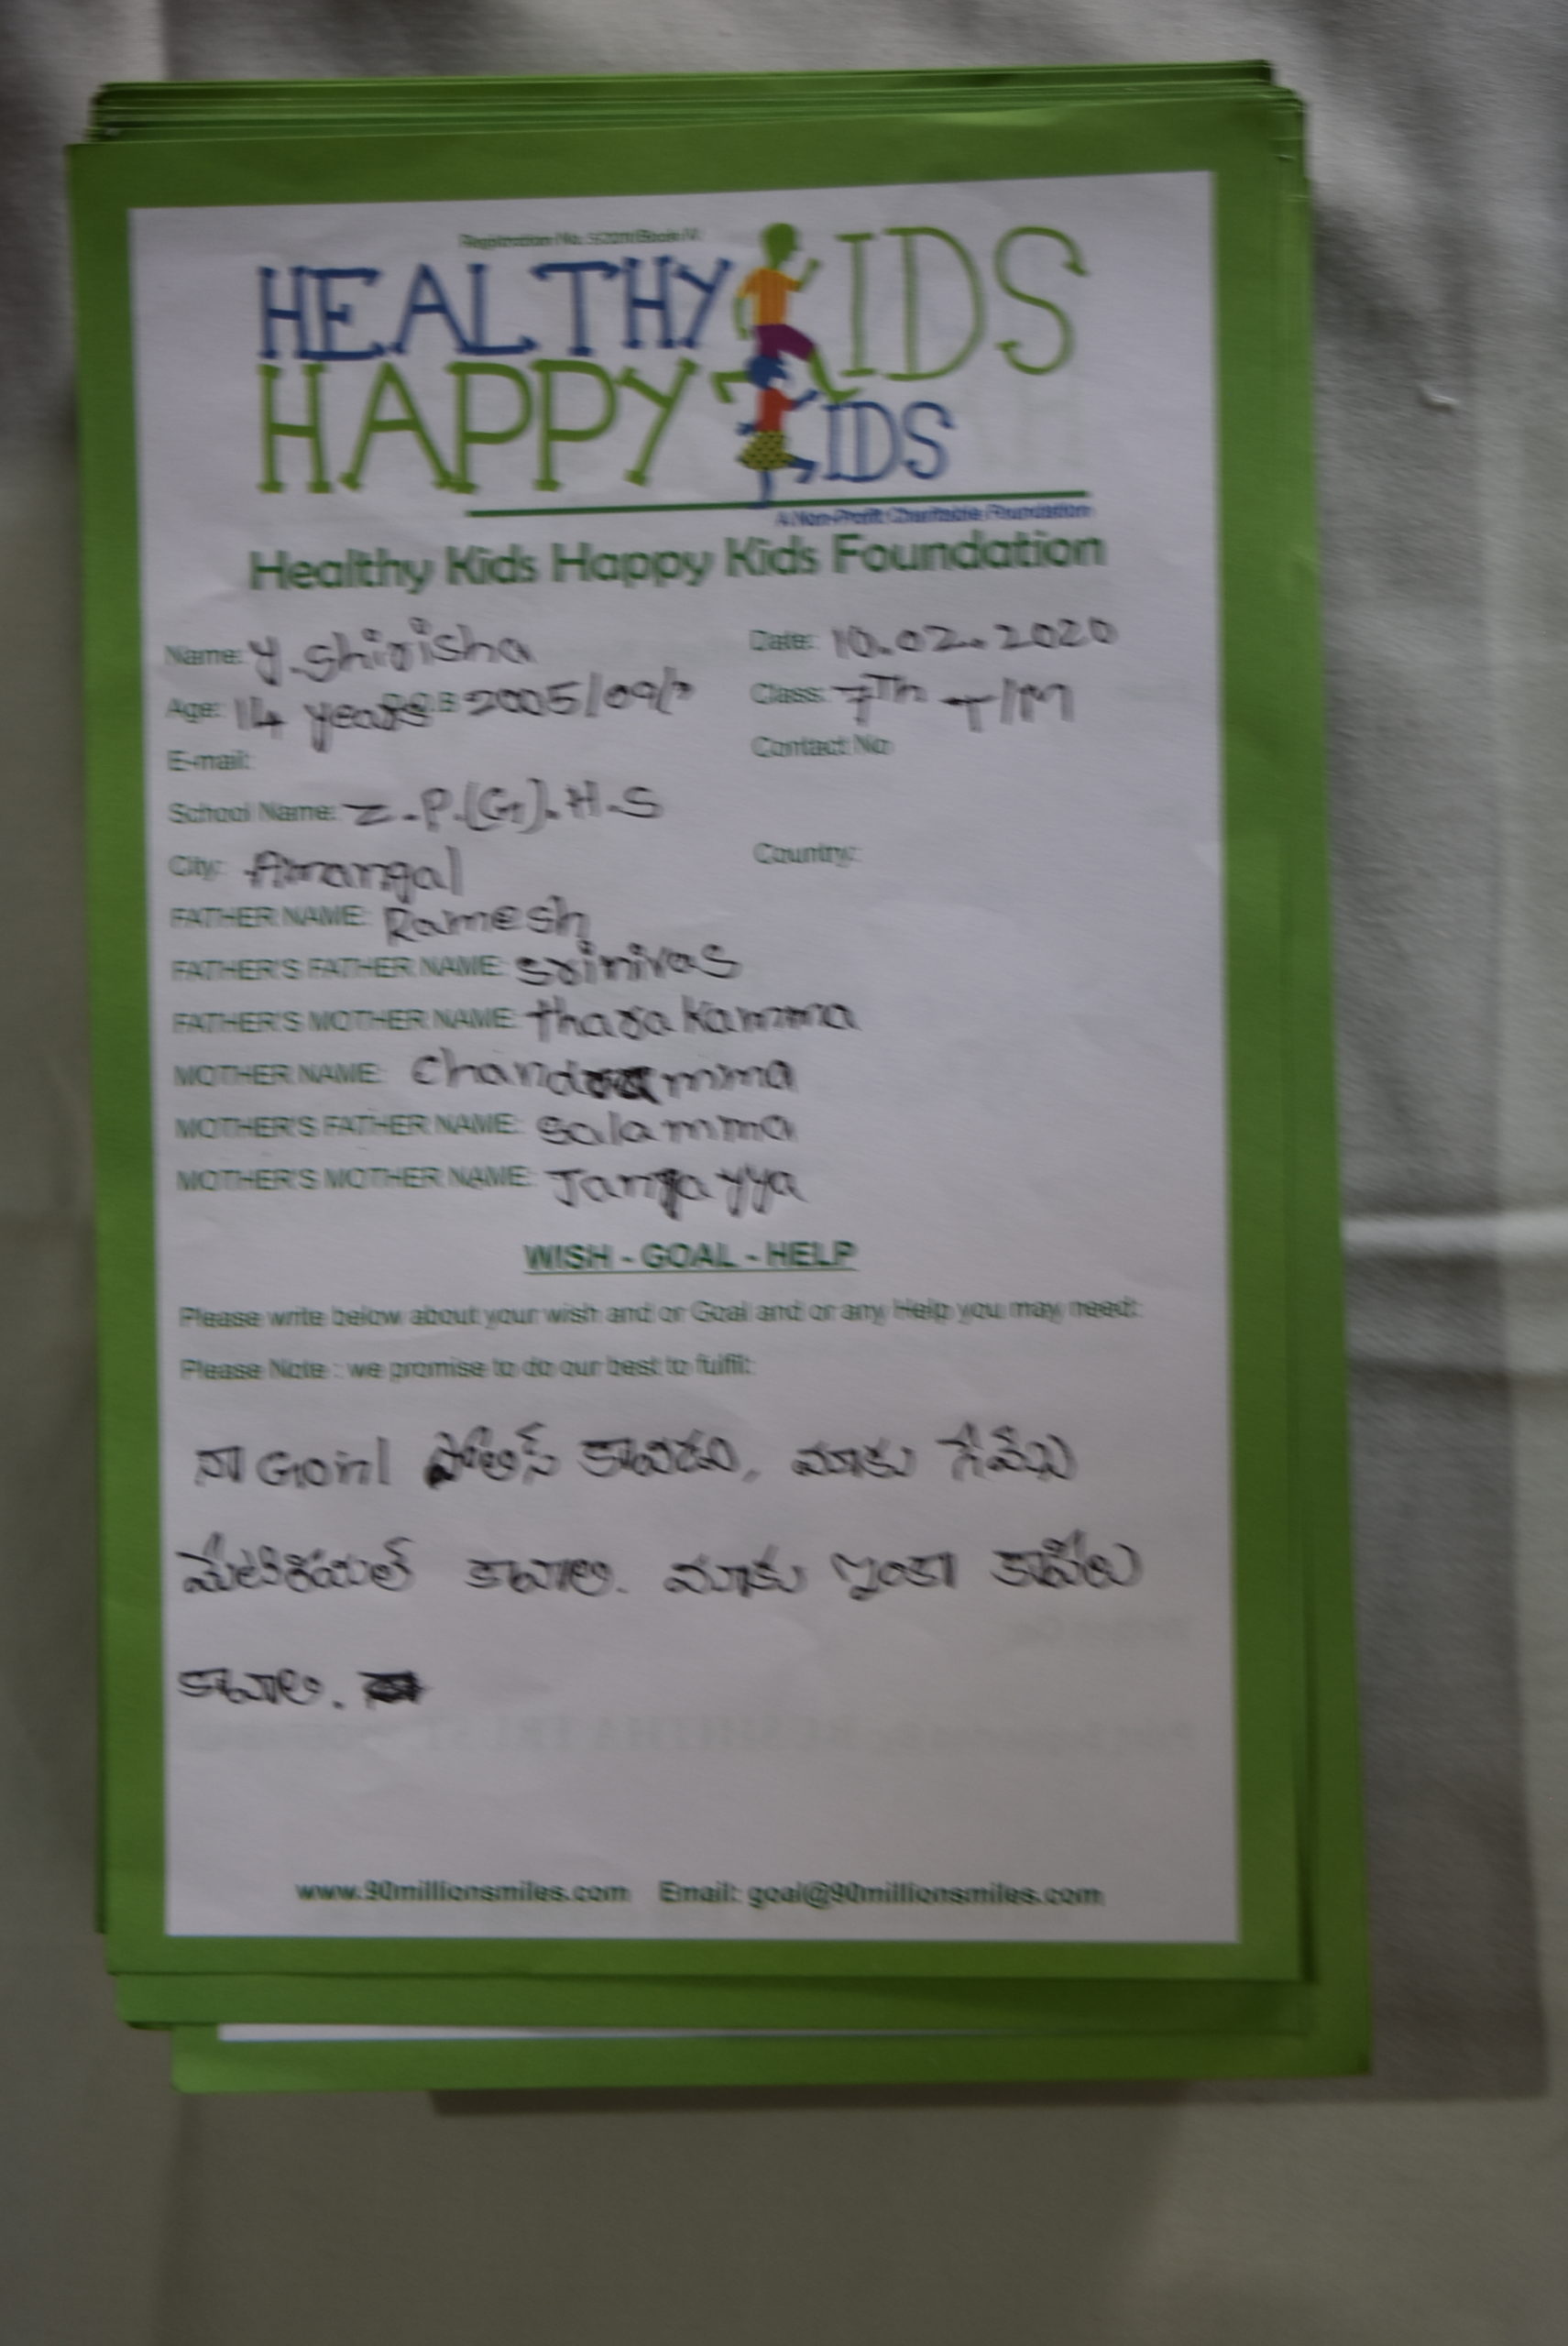 HEALTHY KIDS
HAPPY KIDS
A Non-Profit Charitable Foundation
Healthy Kids Happy Kids Foundation
Name: Y. Shirisha Date: 10.02.2020
Age: 14 years D.O.B 2005/09/ Class: 7Th T/M
E-mail: Contact No
School Name: Z.P.(G).H.S
City: Amangal Country:
FATHER NAME: Ramesh
FATHER'S FATHER NAME: Srinivas
FATHER'S MOTHER NAME: tharakamma
MOTHER NAME: Chandramma
MOTHER'S FATHER NAME: Salamma
MOTHER'S MOTHER NAME: Jangayya
WISH - GOAL - HELP
Please write below about your wish and or Goal and or any Help you may need:
Please Note : we promise to do our best to fulfil:
నా Goinl పోలీస్ కావడం, మాకు గేమ్స్
మేటిరియల్ కావాలి. మాకు ఇంకా కాపీలు
కావాలి.
www.90millionsmiles.com Email: goal@90millionsmiles.com